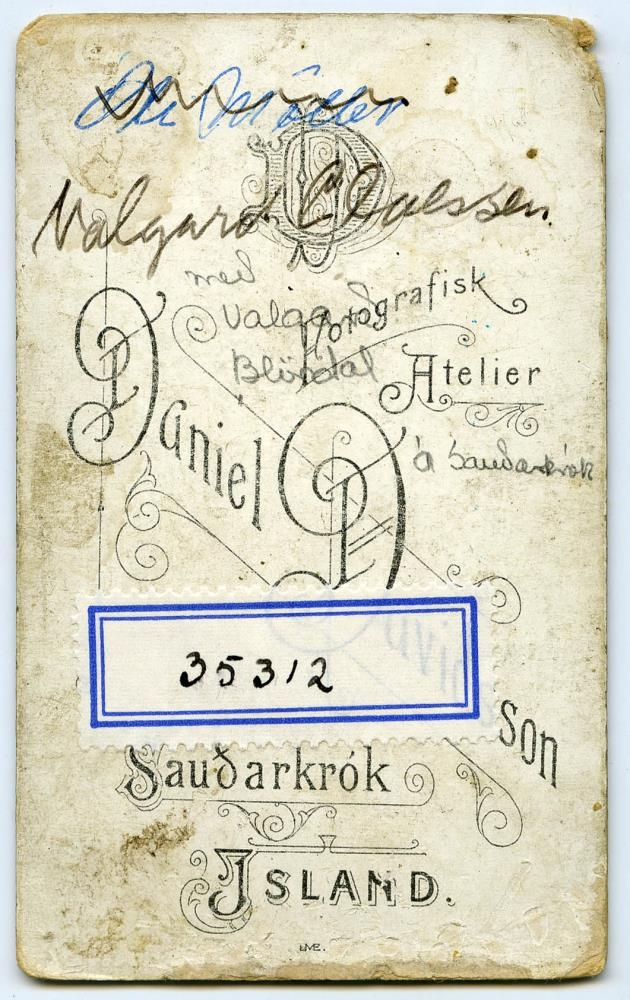 Möller
Valgard Claessen
með
Valgard
Blöndal
Fotografisk
Atelier
Daniel Davidson
á Sauðarkrók
35312
Sauðarkrók
ISLAND.